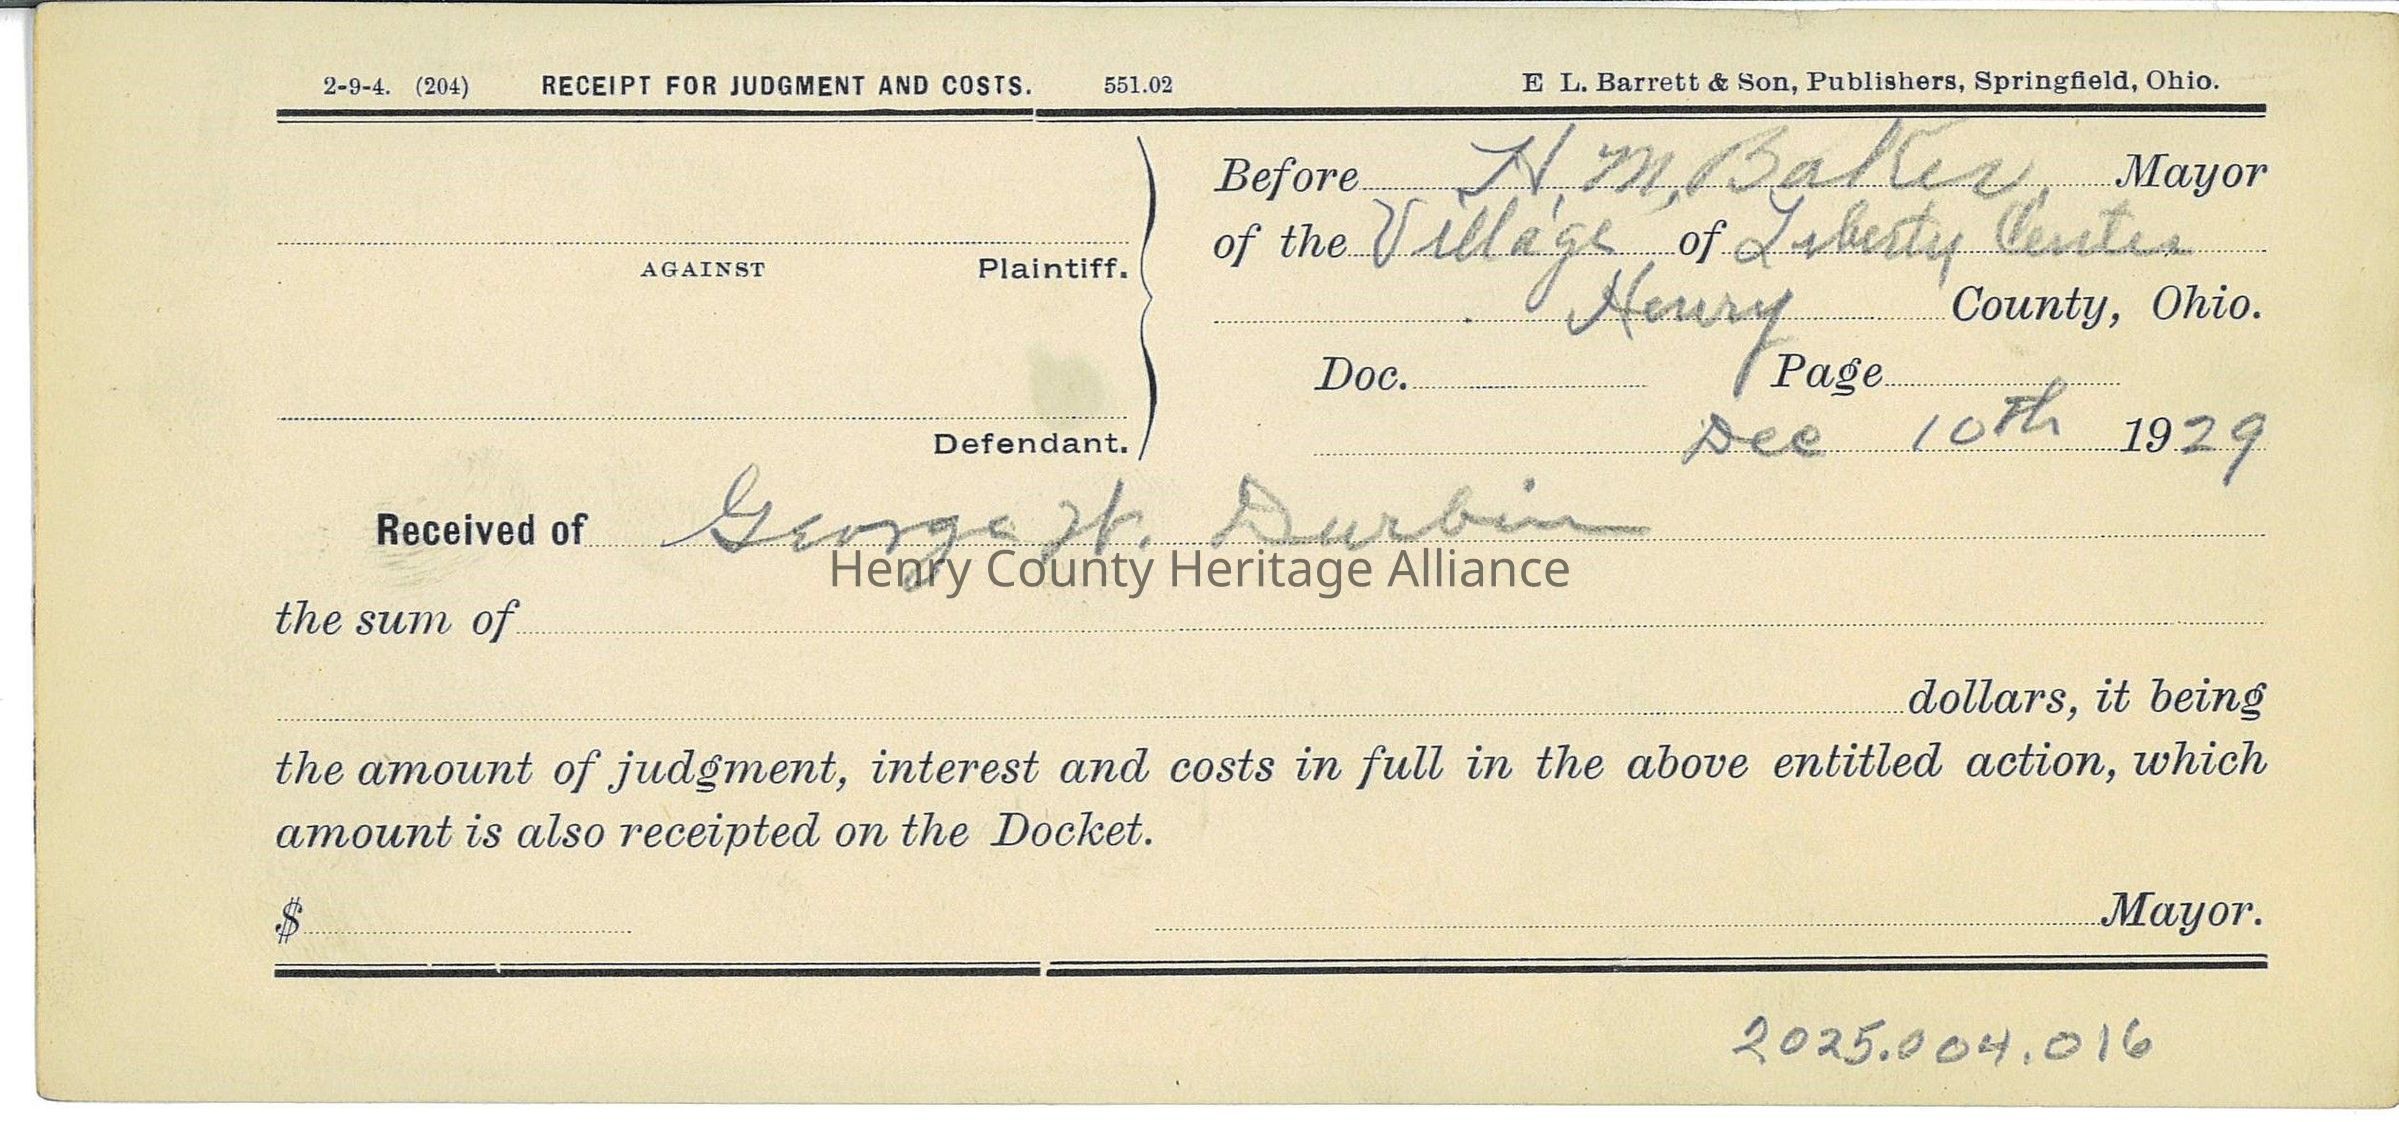 2-9-4. (204) RECEIPT FOR JUDGMENT AND COSTS. 551.02 E L. Barrett & Son, Publishers, Springfield, Ohio.
Before H. M. Baker, Mayor
of the Village of Liberty Center
AGAINST Plaintiff.
Henry County, Ohio.
Doc. Page
Defendant.
Dec 10th 1929
Received of George W. Durbin
Henry County Heritage Alliance
the sum of
dollars, it being
the amount of judgment, interest and costs in full in the above entitled action, which
amount is also receipted on the Docket.
$ Mayor.
2025.004.016